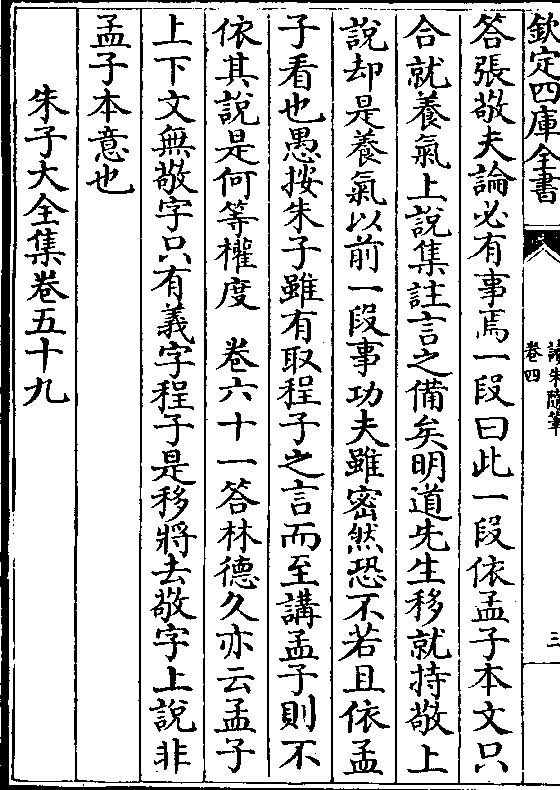 欽定四庫全書
讀朱隨筆
卷四
三
答張敬夫論必有事焉一段曰此一段依孟子本文只
合就養氣上說集註言之備矣明道先生移就持敬上
說却是養氣以前一段事功夫雖密然恐不若且依孟
子看也愚按朱子雖有取程子之言而至講孟子則不
依其說是何等權度　卷六十一答林德久亦云孟子
上下文無敬字只有義字程子是移將去敬字上說非
孟子本意也
朱子大全集卷五十九